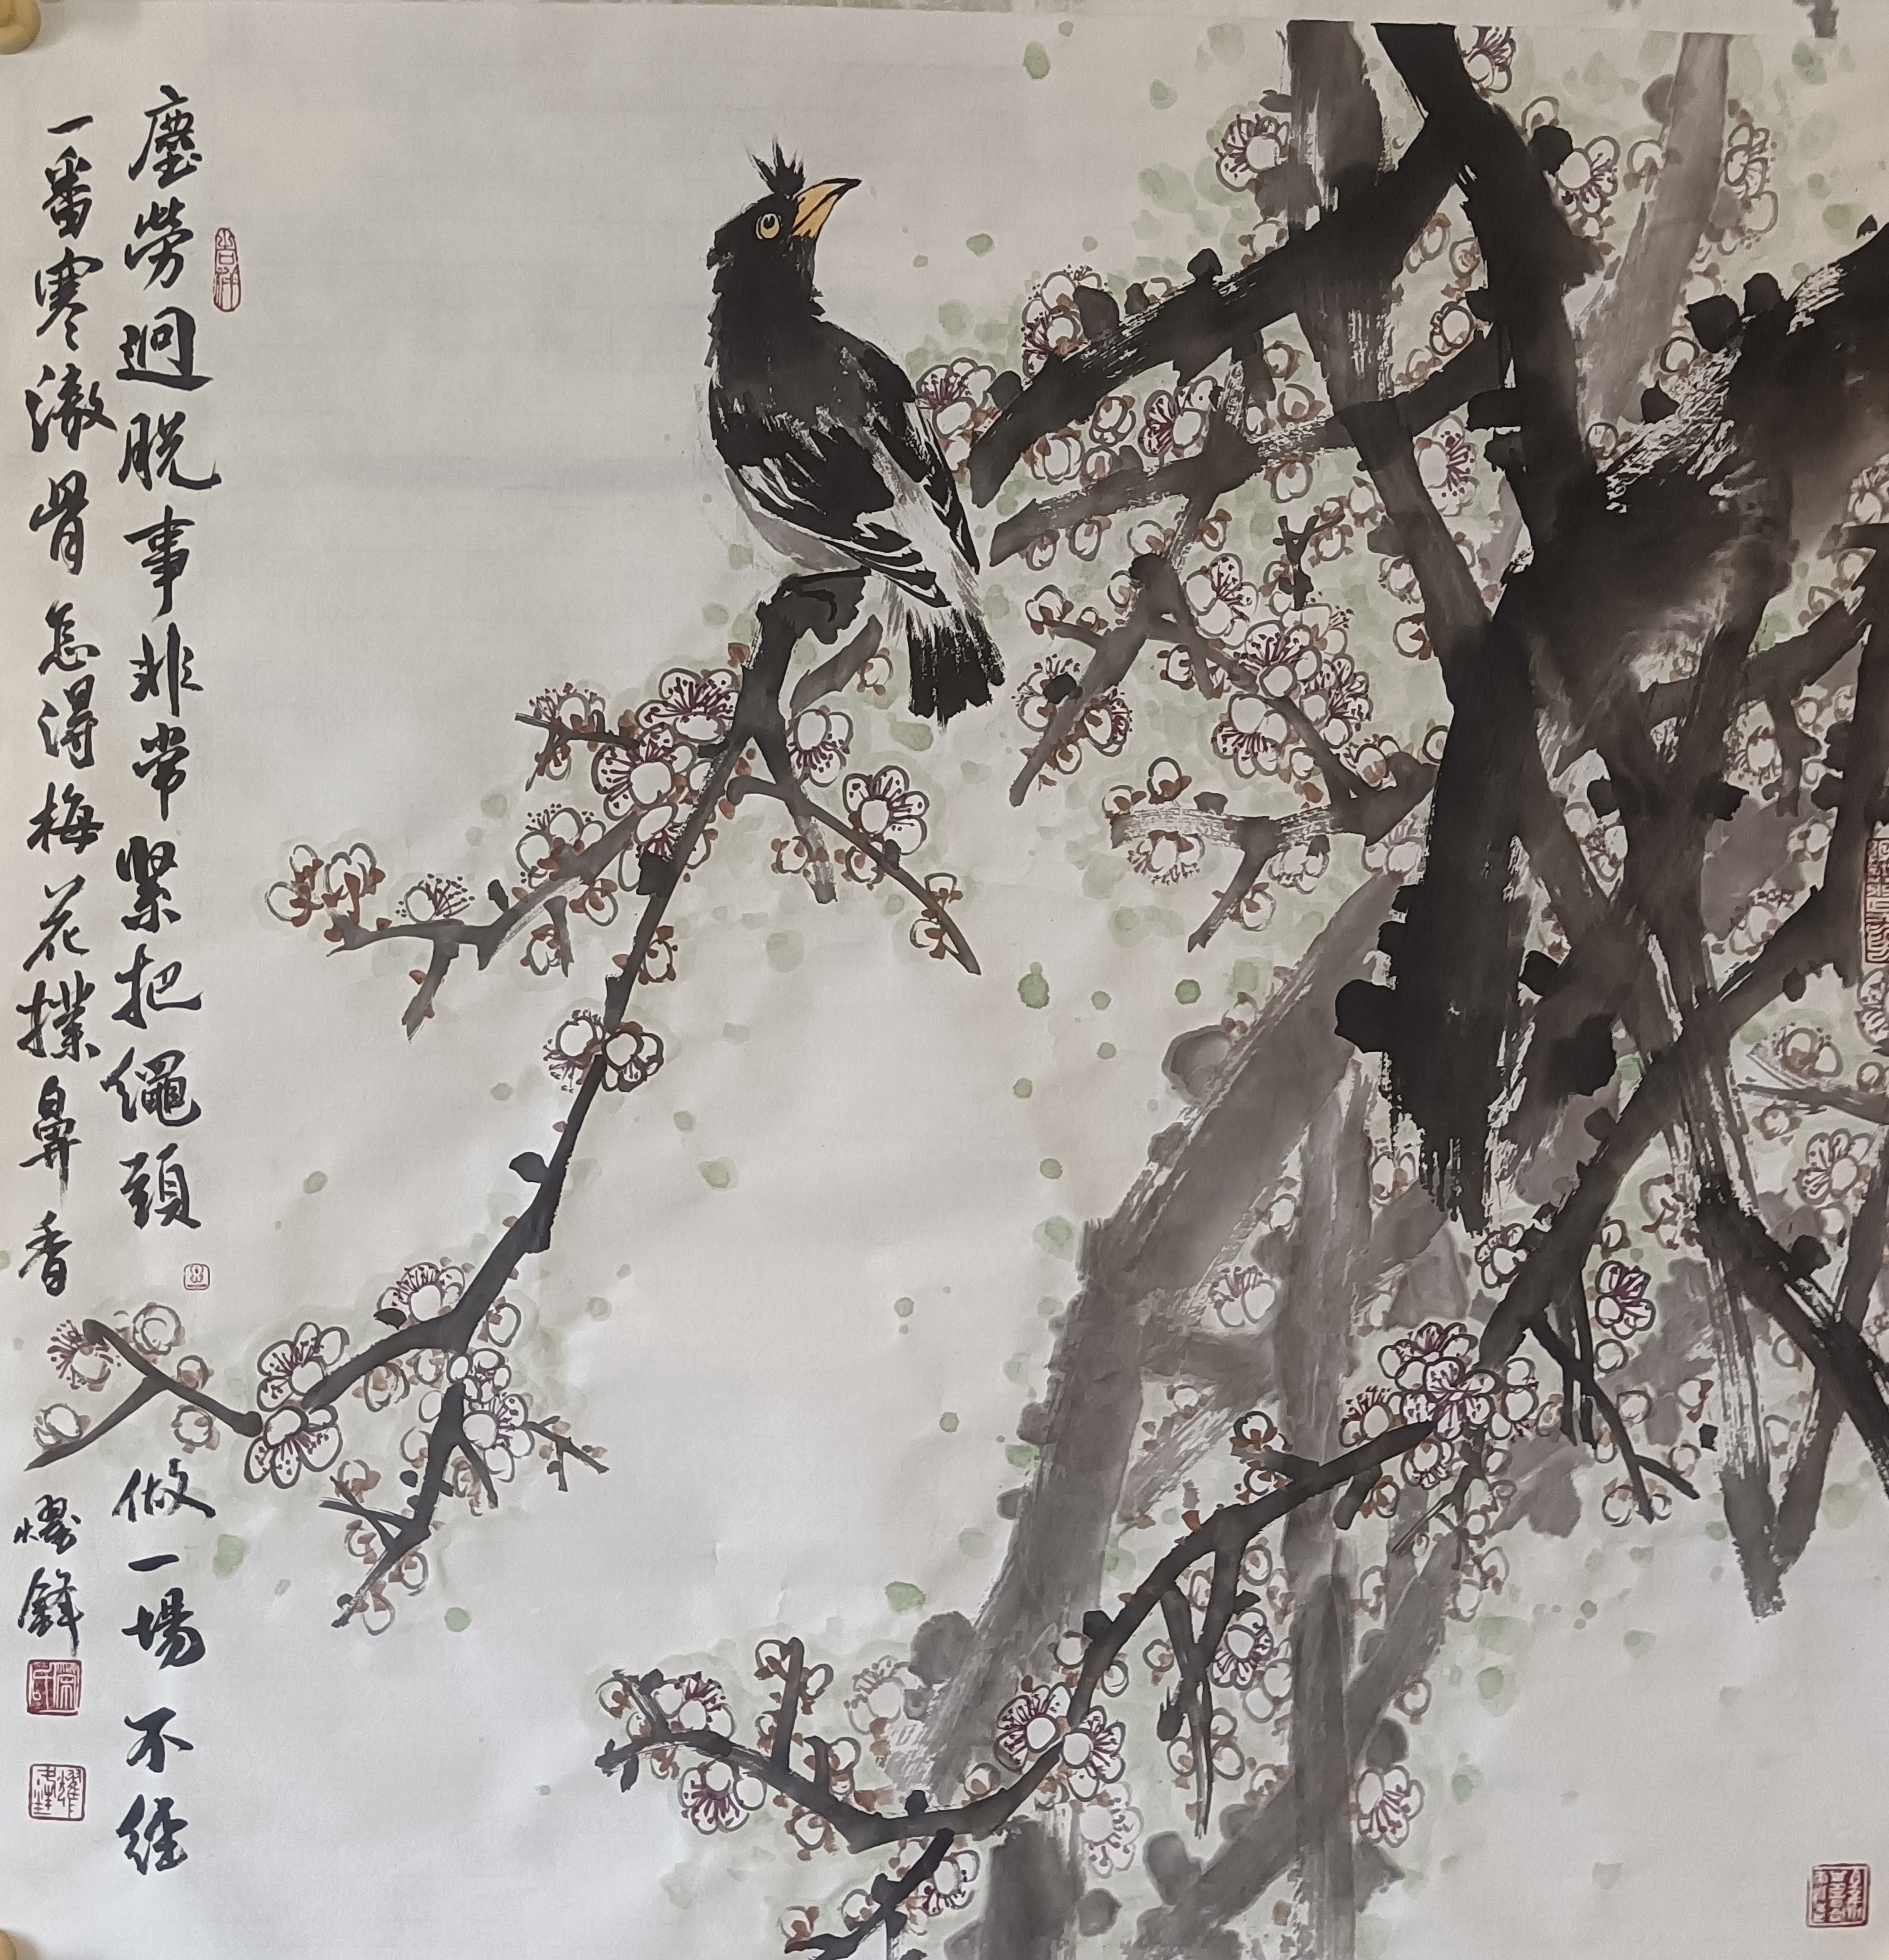 吉祥
塵勞迥脫事非常緊把繩頭做一場不經
一番寒澈骨怎得梅花撲鼻香
燿鋒